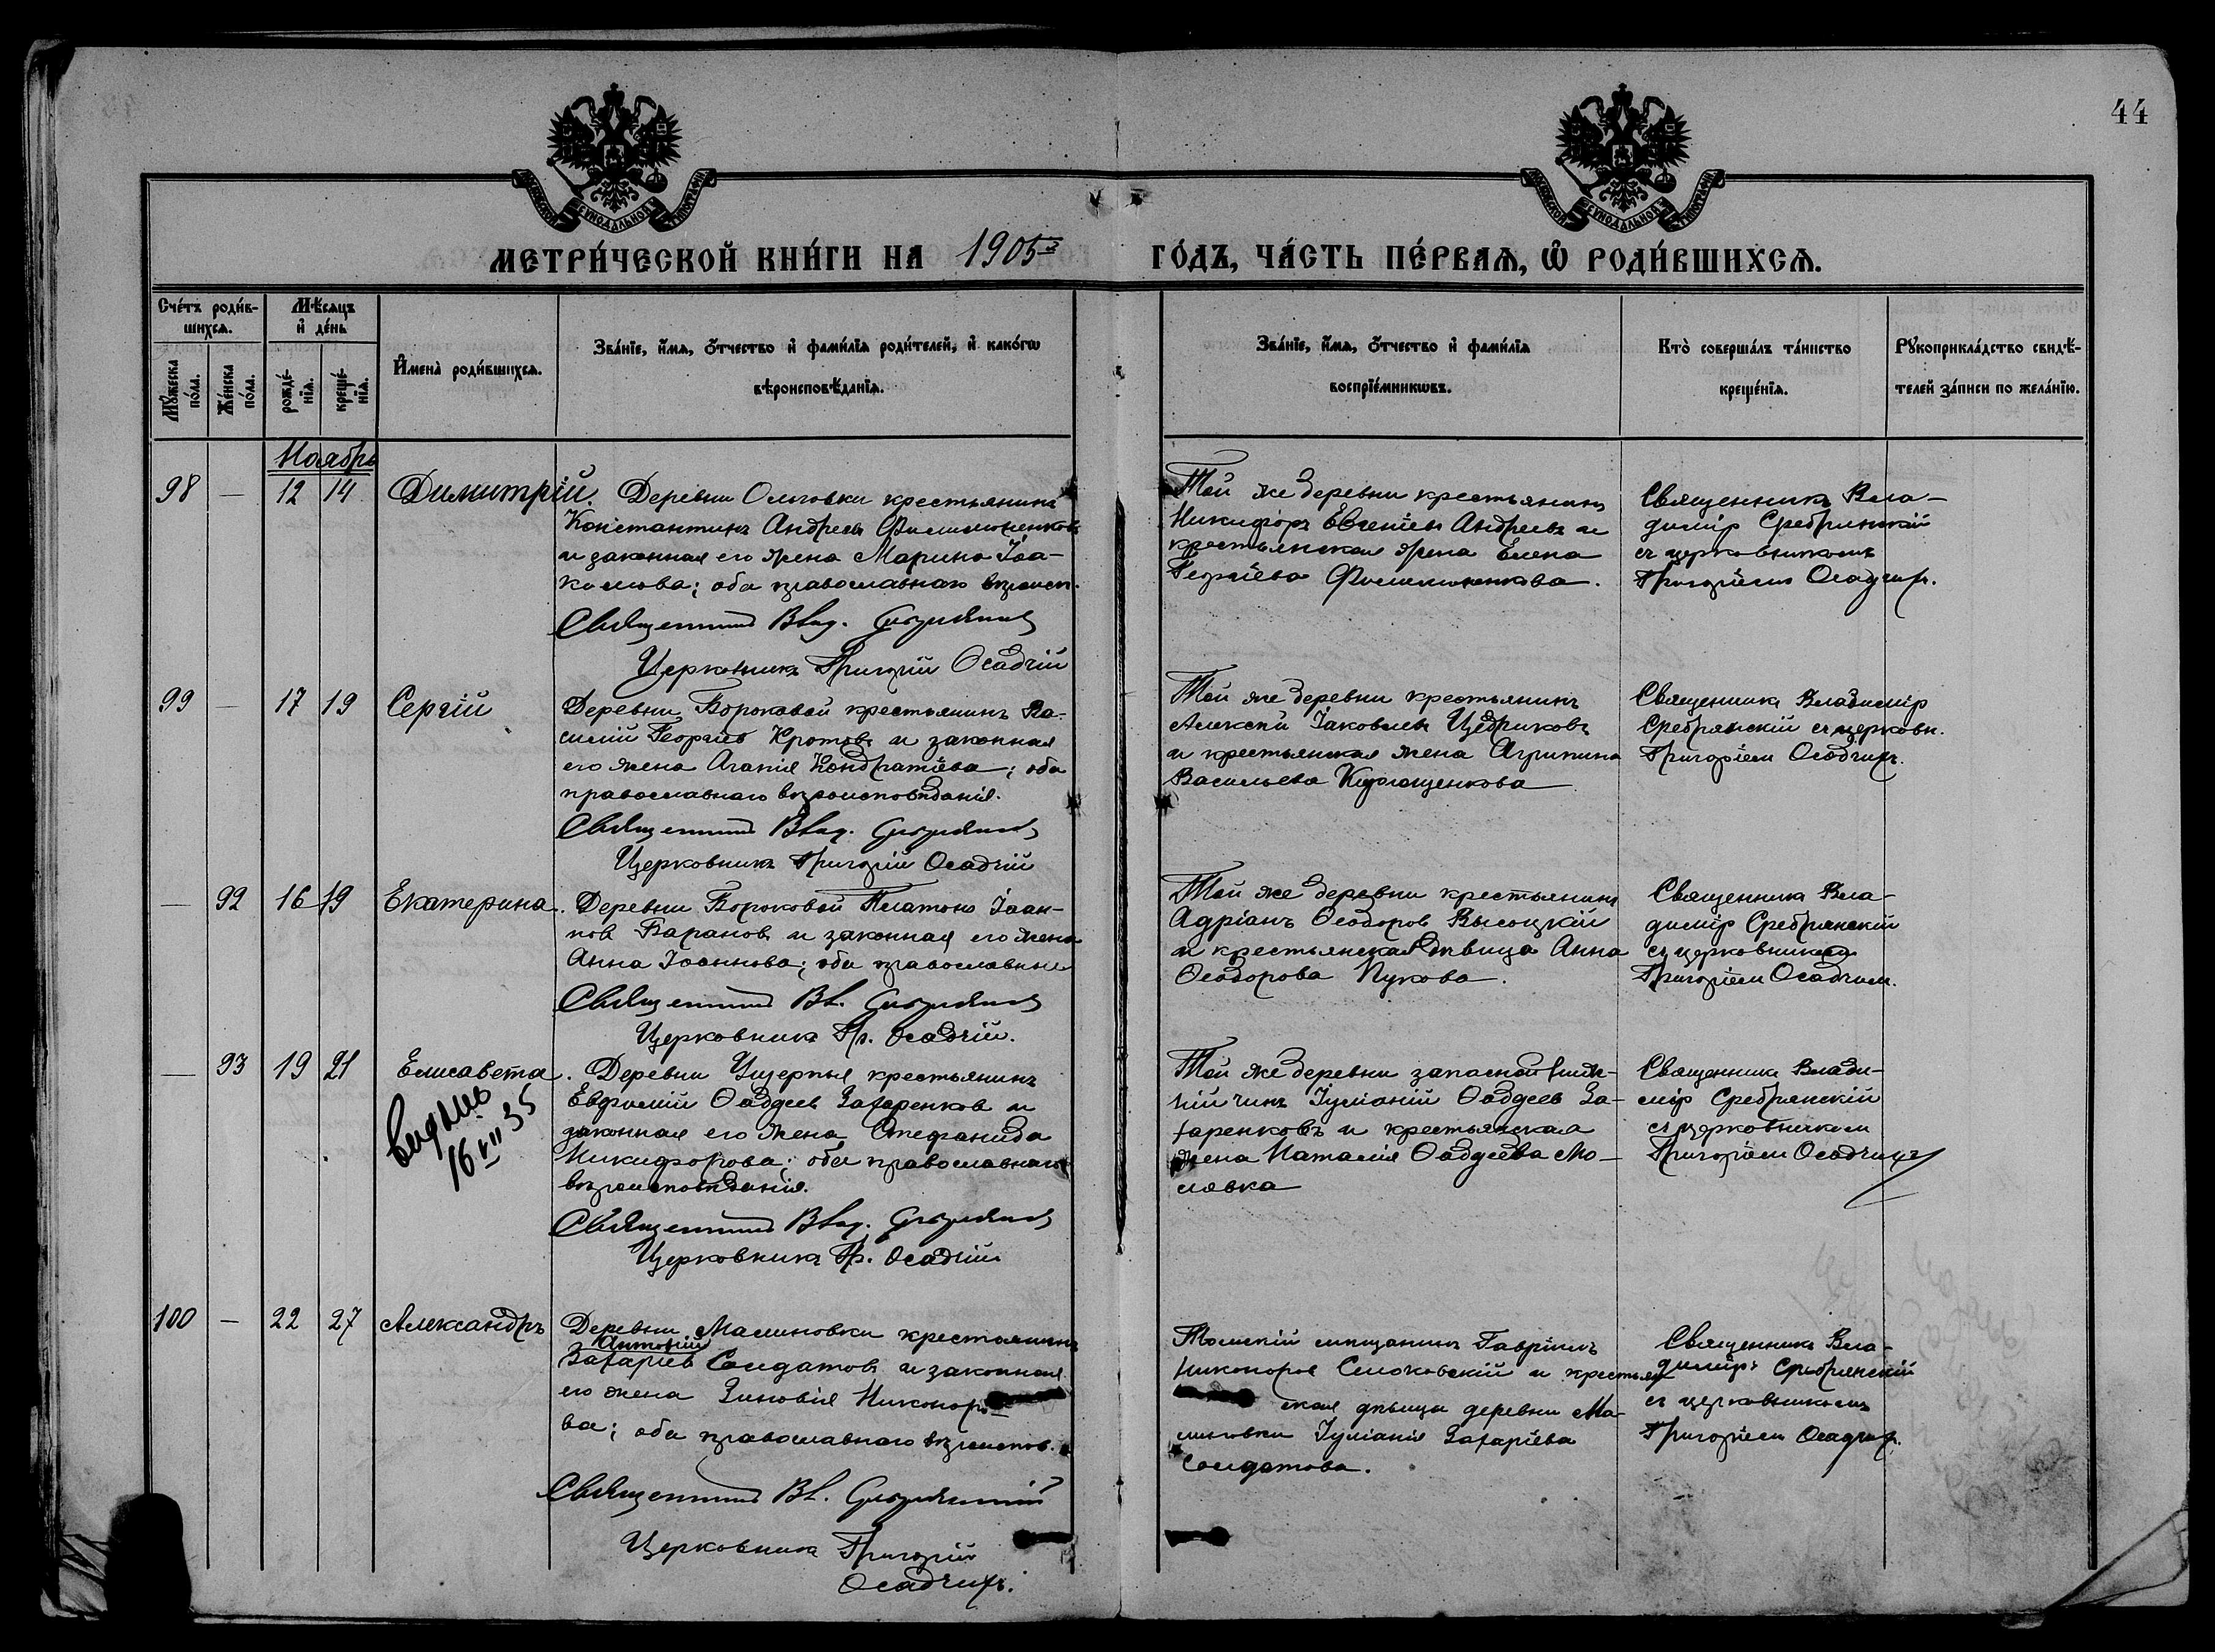 44
МОСКОВСКОЙ СѴНОДАЛЬНОЙ ТИПОГРАФІИ
МОСКОВСКОЙ СѴНОДАЛЬНОЙ ТИПОГРАФІИ
МЕТРИ́ЧЕСКОЙ КНИ́ГИ НА 1905й ГО́ДЪ, ЧА́СТЬ ПЕ́РВАѦ, Ѡ҆ РОДИ́ВШИХСѦ.
Сче́тъ роди́в-
шихсѧ.
Мѣ́сѧцъ
и҆ де́нь
Мꙋ́жеска по́ла.
Же́нска по́ла.
рожде́-
нїѧ.
креще́-
нїѧ.
И҆мена̀ роди́вшихсѧ.
Зва́нїе, и҆́мѧ, ѻ҆́тчество и҆ фами́лїѧ роди́телей, и҆ како́гѡ
вѣроисповѣ́данїѧ.
Зва́нїе, и҆́мѧ, ѻ҆́тчество и҆ фами́лїѧ
воспрїе́мникѡвъ.
Кто̀ соверша́лъ та́инство
креще́нїѧ.
Рꙋкоприкла́дство свидѣ́-
телей за́писи по жела́нїю.
Ноябрь
98 — 12 14 Димитрій.
Деревни Ольговки крестьянинъ
Константинъ Андреевъ Филимоненковъ
и законная его жена Марина Іоа-
кимова; оба православнаго вѣроисп.
Священникъ Влад.
Церковникъ Григорій Осадчій
Той же деревни крестьянинъ
Никифоръ Евгеніевъ Андреевъ и
крестьянская жена Елена
Георгіева Филимоненкова.
Священникъ Вла-
димір Сребрянскій
съ церковникомъ
Григоріемъ Осадчимъ.
99 — 17 19 Сергій
Деревни Бороковой крестьянинъ Ва-
силій Георгіевъ Кротовъ и законная
его жена Агапія Кондратіева; оба
православнаго вѣроисповѣданія.
Священникъ Влад.
Церковникъ Григорій Осадчій
Той же деревни крестьянинъ
Алексѣй Іаковлевъ Цедриковъ
и крестьянская жена Агрипина
Васильева
Священникъ Владимір
Сребрянскій съ церковн.
Григоріемъ Осадчимъ.
— 92 16 19 Екатерина.
Деревни Бороковой Платонъ Іоан-
нов Барановъ и законная его жена
Анна Іоаннова; оба православные
Священникъ Вл.
Церковникъ Гр. Осадчій.
Той же деревни крестьянинъ
Адріанъ Ѳеодоров Высоцкій
и крестьянская дѣвица Анна
Ѳеодорова Пукова.
Священникъ Вла-
димір Сребрянскій
съ церковникомъ
Григоріем Осадчим.
— 93 19 21 Елисавета.
16 VII 35
Деревни Ущерпья крестьянинъ
Евфимій Ѳаддеев Захаренков и
законная его жена Стефанида
Никифорова; оба православнаго
вѣроисповѣданія.
Священникъ Влад.
Церковникъ Гр. Осадчій
Той же деревни запасной ниж-
ній чинъ Іуліаній Ѳаддеев За-
харенковъ и крестьянская
жена Наталія Ѳаддеева Мо-
лявка
Священникъ Влади-
мір Сребрянскій
съ церковником
Григоріем Осадчимъ
100 — 22 27 Александръ
Деревни Малиновки крестьянинъ
Антоній
Захаріев Солдатовъ и законная
его жена Зиновія Никоноро-
ва; оба православнаго вѣроисповѣ.
Священникъ Вл.
Церковникъ Григорій
Осадчій.
Томскій мѣщанинъ Гавріилъ
Никоноров и крестьян
ская дѣвица деревни Ма-
линовки Іуліанія Захаріева
Солдатова.
Священникъ Вла-
димір Сребрянскій
съ церковникомъ
Григоріем Осадчимъ.